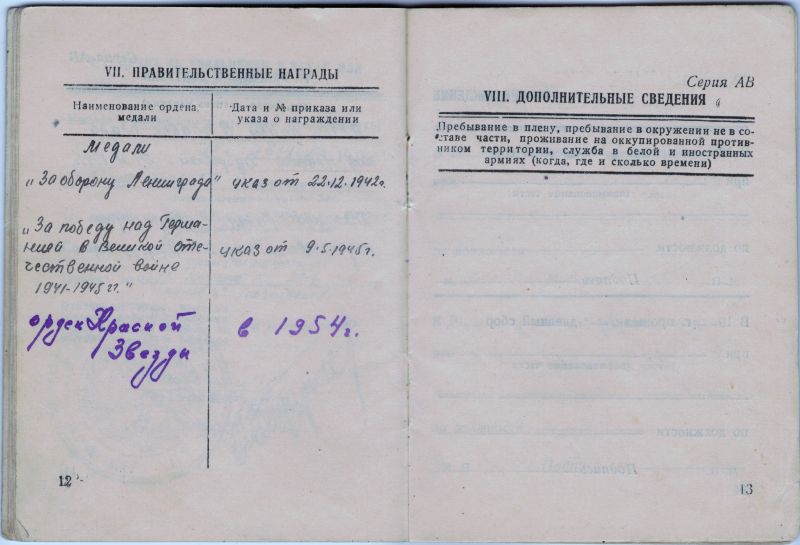 VII. ПРАВИТЕЛЬСТВЕННЫЕ НАГРАДЫ
Наименование ордена,
медали
Дата и № приказа или
указа о награждении
Медали
„За оборону Ленинграда"
указ от 22.12.1942г.
„За победу над Герма-
нией в Великой оте-
чественной войне
1941-1945 гг."
указ от 9.5.1945г.
орден Красной
Звезды
в 1954г.
12
Серия АВ
VIII. ДОПОЛНИТЕЛЬНЫЕ СВЕДЕНИЯ
Пребывание в плену, пребывание в окружении не в со-
ставе части, проживание на оккупированной против-
ником территории, служба в белой и иностранных
армиях (когда, где и сколько времени)
13